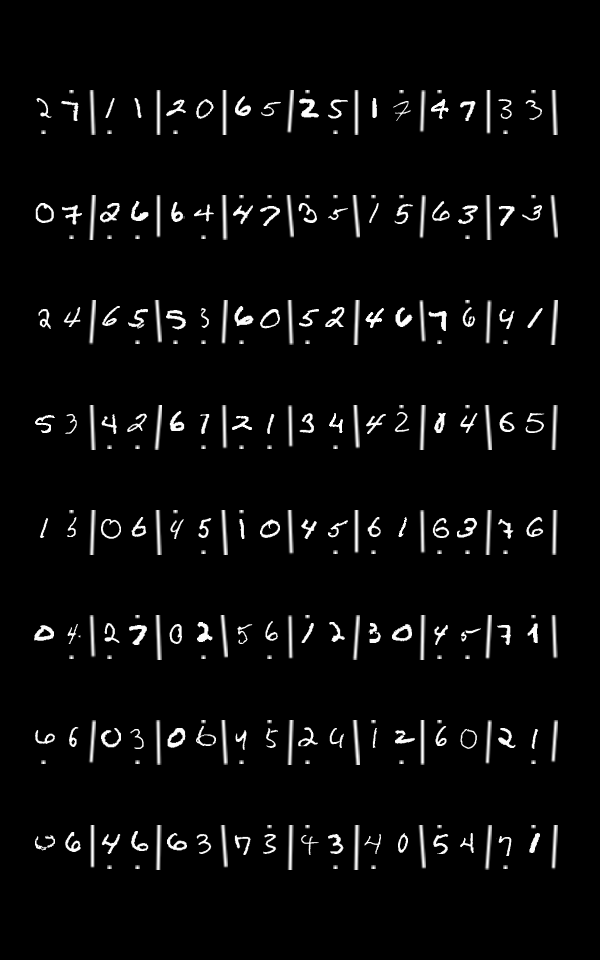 27|11|20|65|25|17|47|33|
07|26|64|47|35|15|63|73|
24|65|53|60|52|46|76|41|
53|42|67|21|34|42|04|65|
13|06|45|10|45|61|63|76|
04|27|02|56|12|30|45|71|
66|03|06|45|24|12|60|21|
06|46|63|73|43|40|54|71|